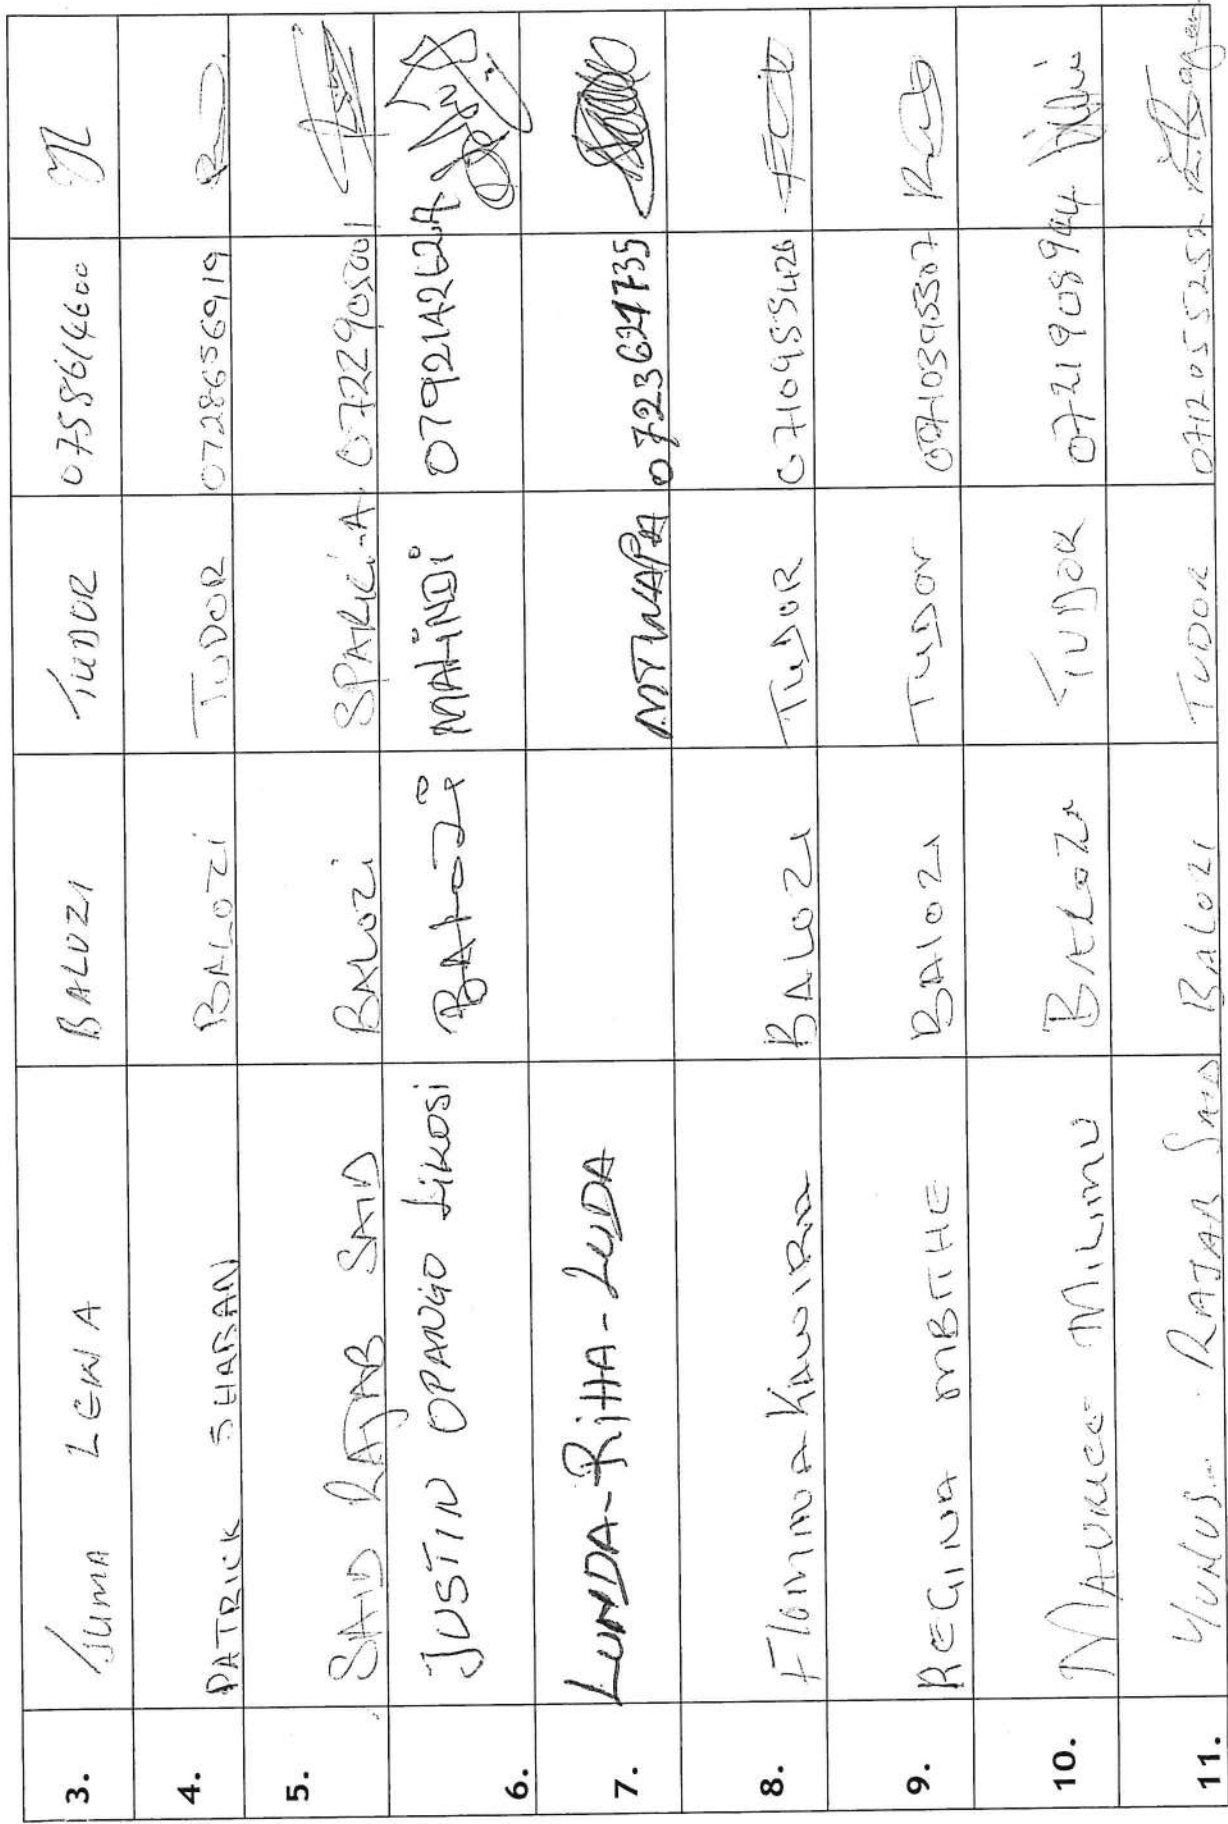 3. Juma LEWA BALOZI TUDOR 0758614600
4. PATRICK SHABAN BALOZI TUDOR 0728656919
5. SAID RAJAB SAID BALOZI SPAKI-A 0722905001
6. JUSTIN OPANGO Likosi BALOZi MAHiNDi 079214262A
7. LUNDA-RiHA-LUDA MTWAPA 0723621735
8. FlominaKAWIRA BALOZI TUDOR 0710955426
9. REGINA MBITHE BAlOZI TUDOr 0710395507
10. MAURICE MILIMU BALOZI TUDOR 0721908944
11. YUNUS RAJAB SAID BALOZI TUDOR 0712055252